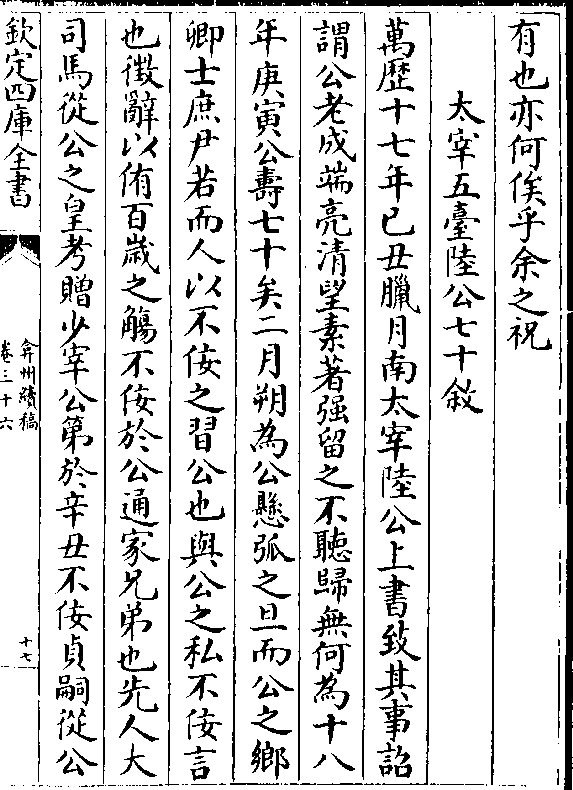 有也亦何俟乎余之祝
太宰五臺陸公七十敘
萬歷十七年已丑臘月南太宰陸公上書致其事詔
謂公老成端亮清望素著强留之不聽歸無何為十八
年庚寅公壽七十矣二月朔為公懸弧之旦而公之鄉
卿士庶尹若而人以不佞之習公也與公之私不佞言
也徴辭以侑百歳之觴不佞於公通家兄弟也先人大
司馬從公之皇考贈少宰公第於辛丑不佞貞嗣從公
欽定四庫全書
弇州續稿
卷三十六
十七